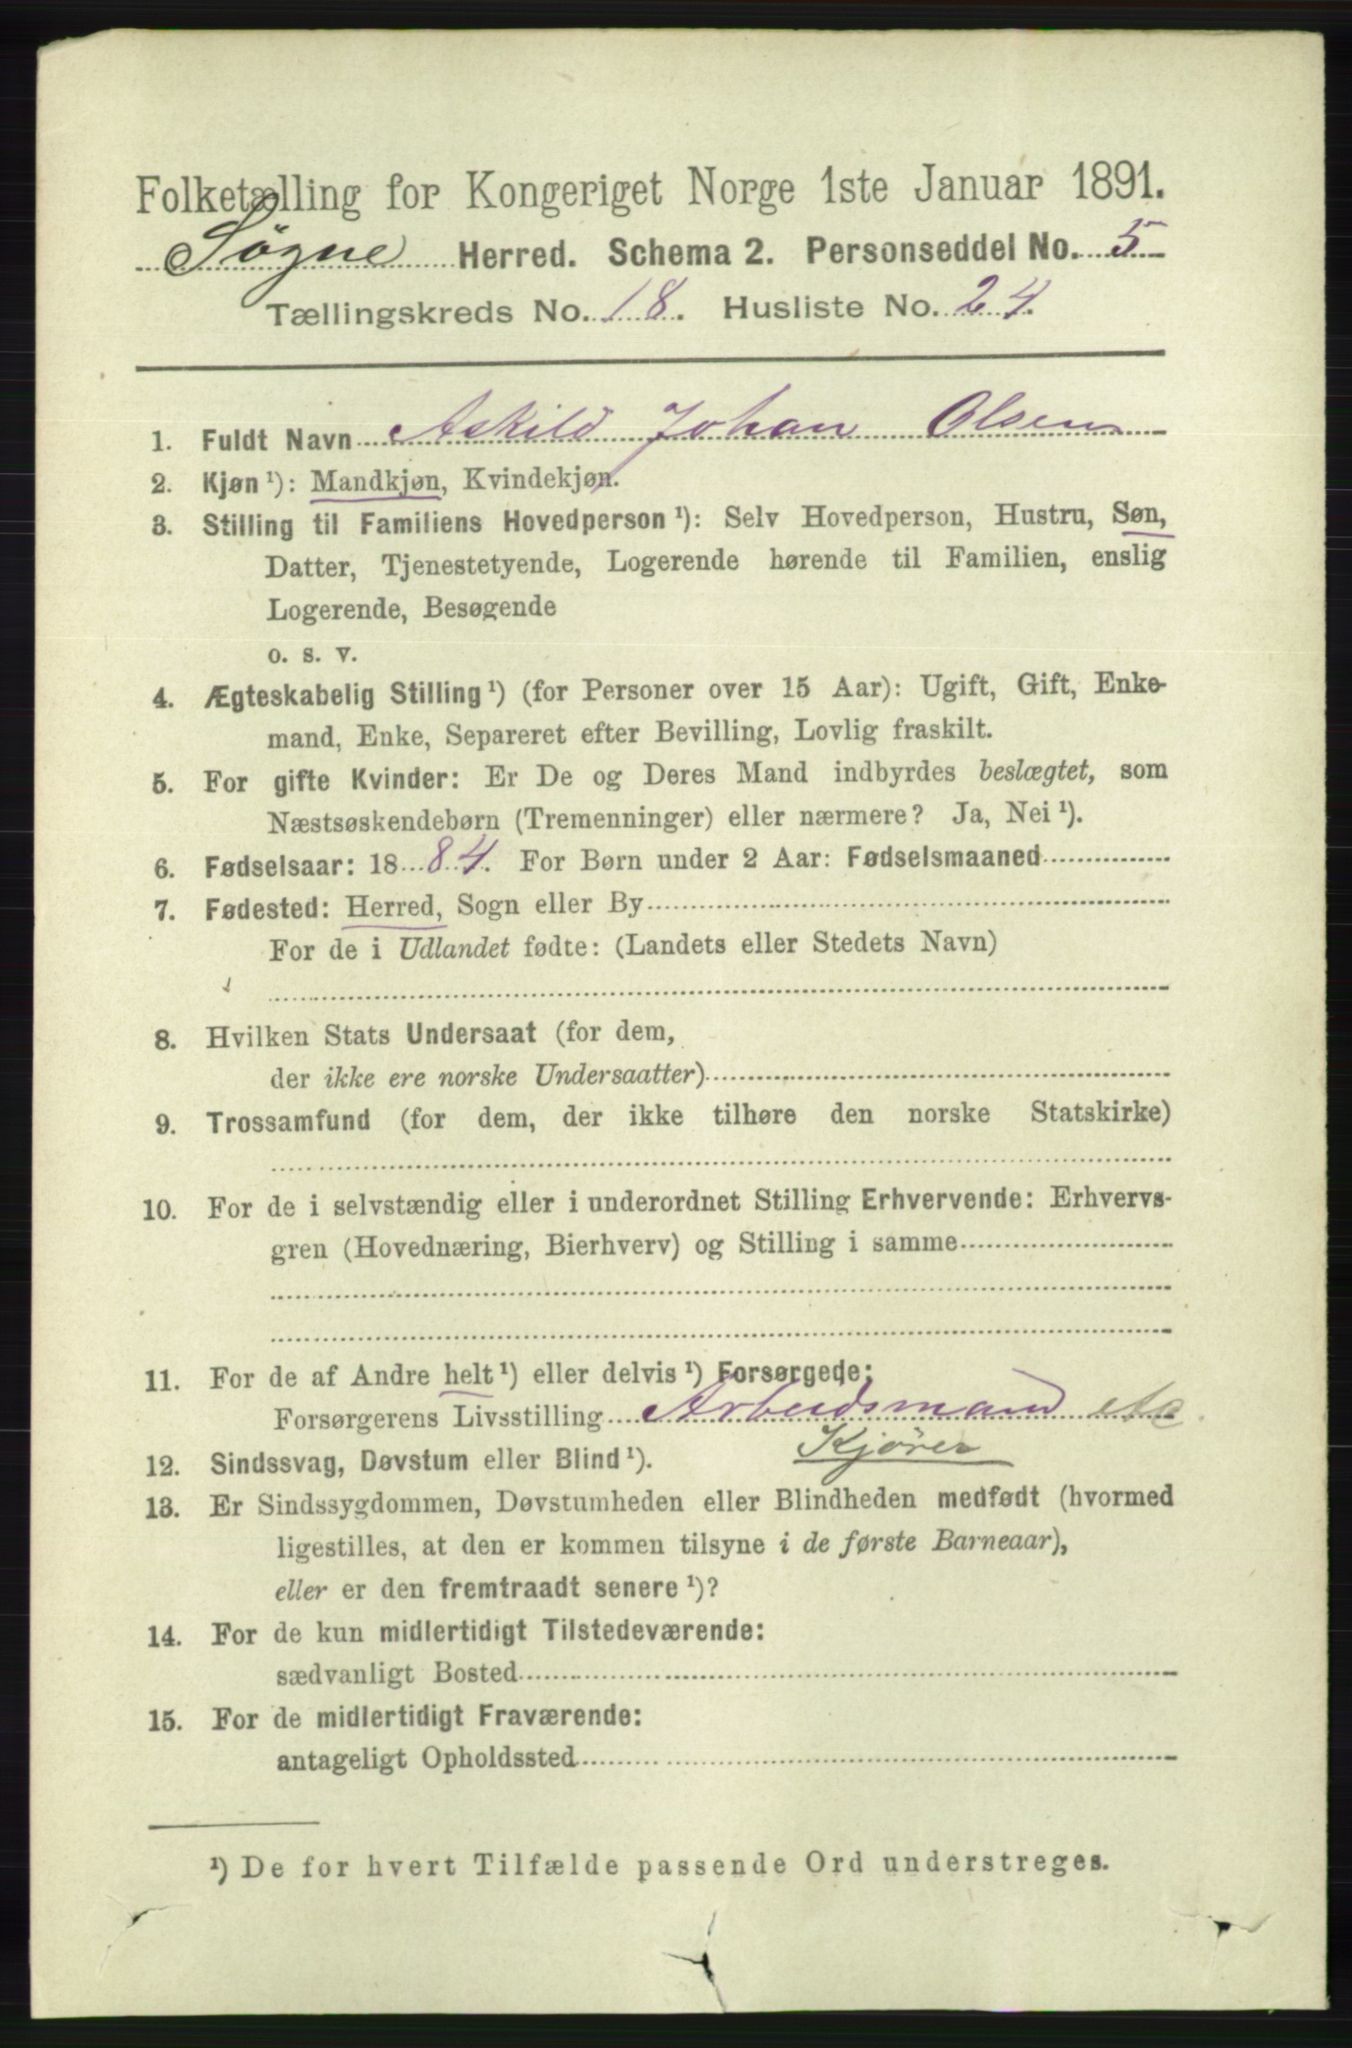 Folketælling for Kongeriget Norge 1ste Januar 1891.
Søgne Herred. Schema 2. Personseddel No. 5
Tællingskreds No. 18. Husliste No. 24.
1. Fuldt Navn Askild Johan Olsen
2. Kjøn ¹): Mandkjøn, Kvindekjøn.
3. Stilling til Familiens Hovedperson ¹): Selv Hovedperson, Hustru, Søn,
Datter, Tjenestetyende, Logerende hørende til Familien, enslig
Logerende, Besøgende
o. s. v.
4. Ægteskabelig Stilling ¹) (for Personer over 15 Aar): Ugift, Gift, Enke-
mand, Enke, Separeret efter Bevilling, Lovlig fraskilt.
5. For gifte Kvinder: Er De og Deres Mand indbyrdes beslægtet, som
Næstsøskendebørn (Tremenninger) eller nærmere? Ja, Nei ¹).
6. Fødselsaar: 1884. For Børn under 2 Aar: Fødselsmaaned
7. Fødested: Herred, Sogn eller By
For de i Udlandet fødte: (Landets eller Stedets Navn)
8. Hvilken Stats Undersaat (for dem,
der ikke ere norske Undersaatter)
9. Trossamfund (for dem, der ikke tilhøre den norske Statskirke)
10. For de i selvstændig eller i underordnet Stilling Erhvervende: Erhvervs-
gren (Hovednæring, Bierhverv) og Stilling i samme
11. For de af Andre helt ¹) eller delvis ¹) Forsørgede:
Forsørgerens Livsstilling Arbeidsmand
Kjører
12. Sindssvag, Døvstum eller Blind ¹).
13. Er Sindssygdommen, Døvstumheden eller Blindheden medfødt (hvormed
ligestilles, at den er kommen tilsyne i de første Barneaar),
eller er den fremtraadt senere ¹)?
14. For de kun midlertidigt Tilstedeværende:
sædvanligt Bosted
15. For de midlertidigt Fraværende:
antageligt Opholdssted
¹) De for hvert Tilfælde passende Ord understreges.